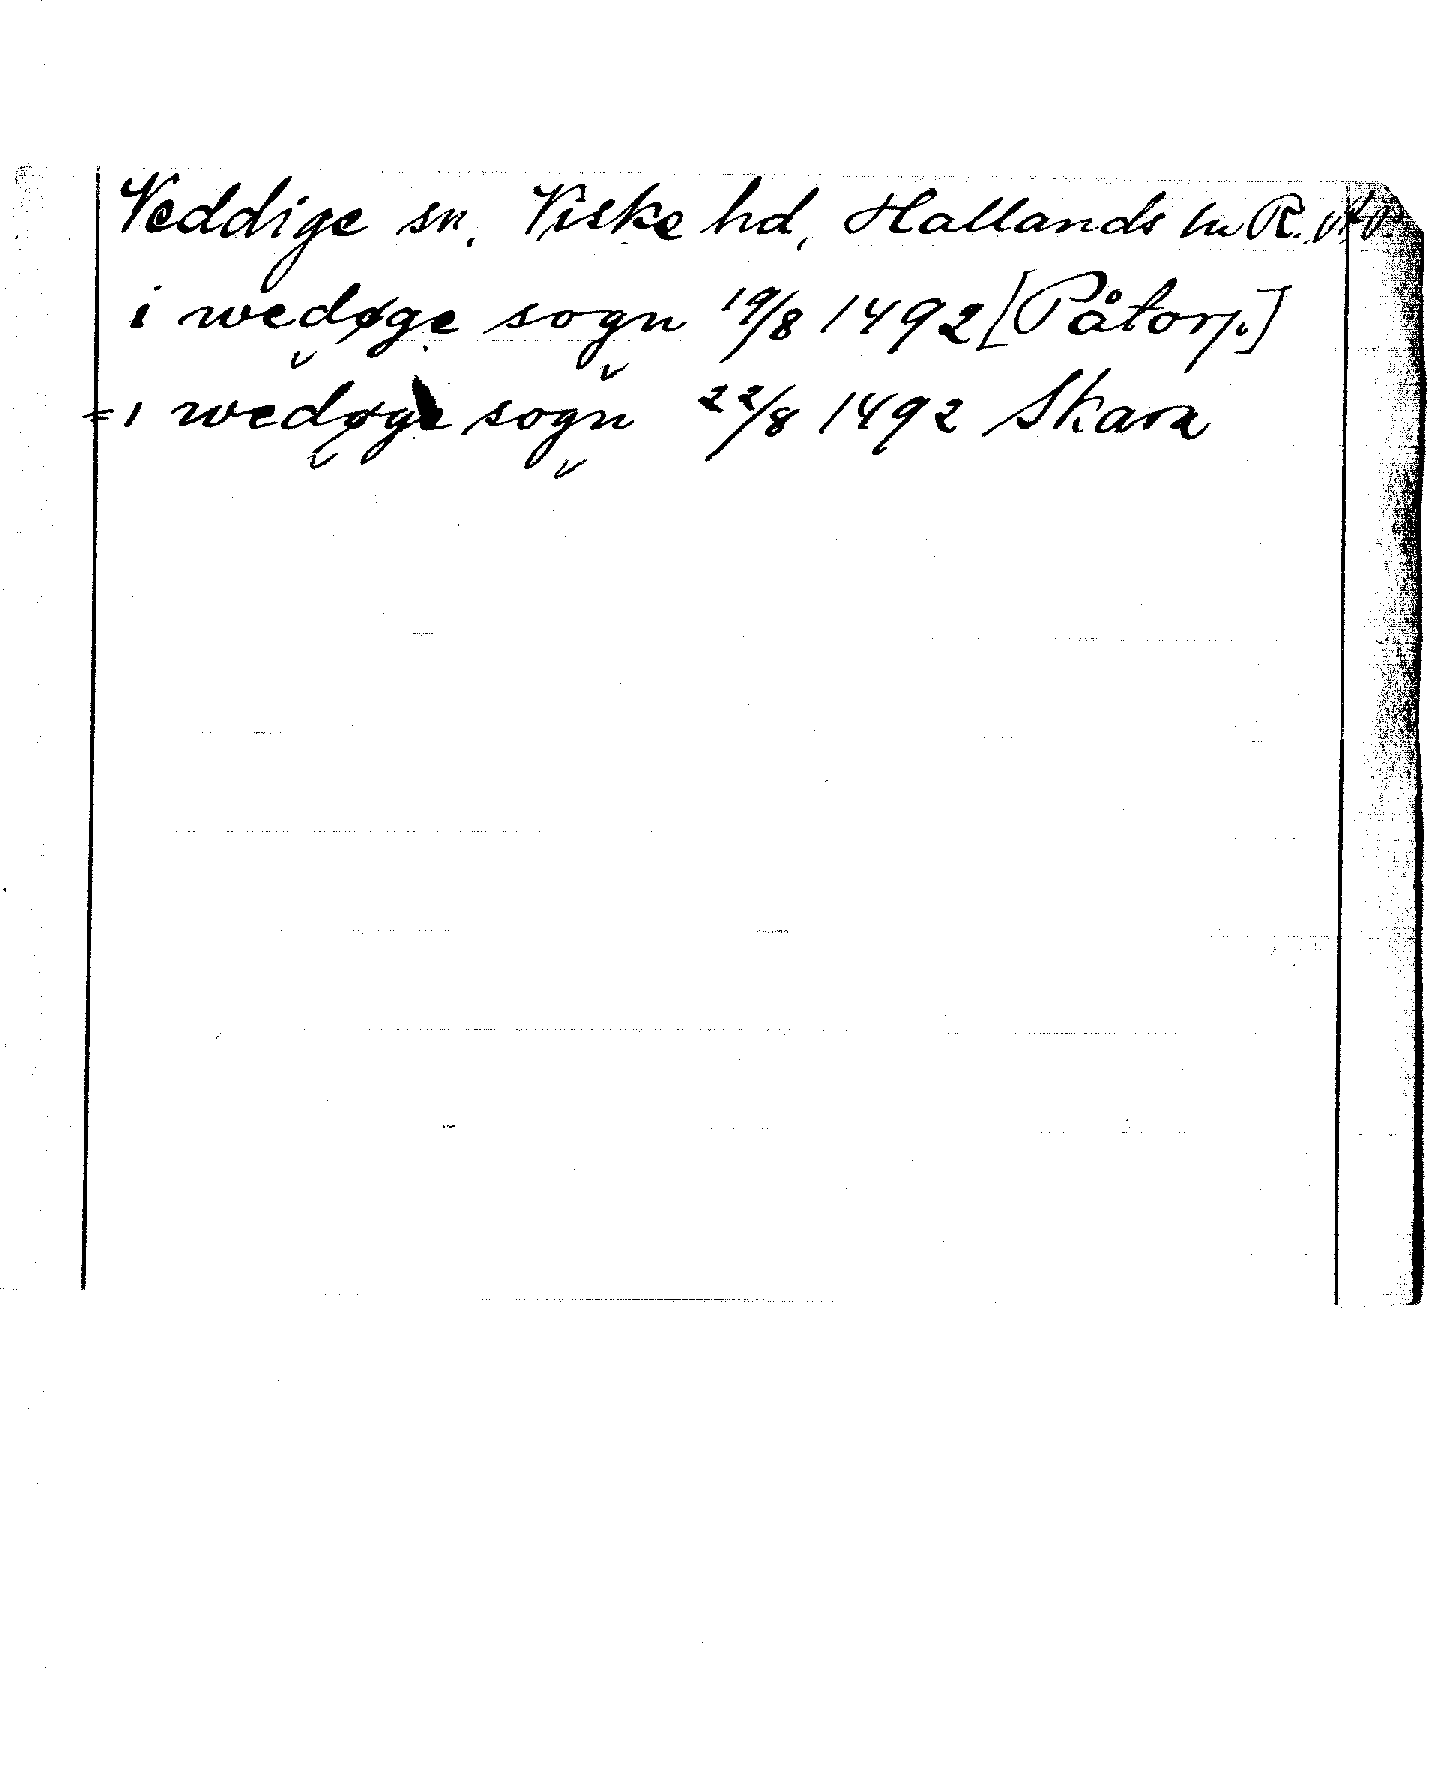 Veddige sn, Viske hd, Hallands ln R.A.P.
i wedøge sogn 19/8 1492 [Påtorp.]
= i wedøge sogn 22/8 1492 Skara